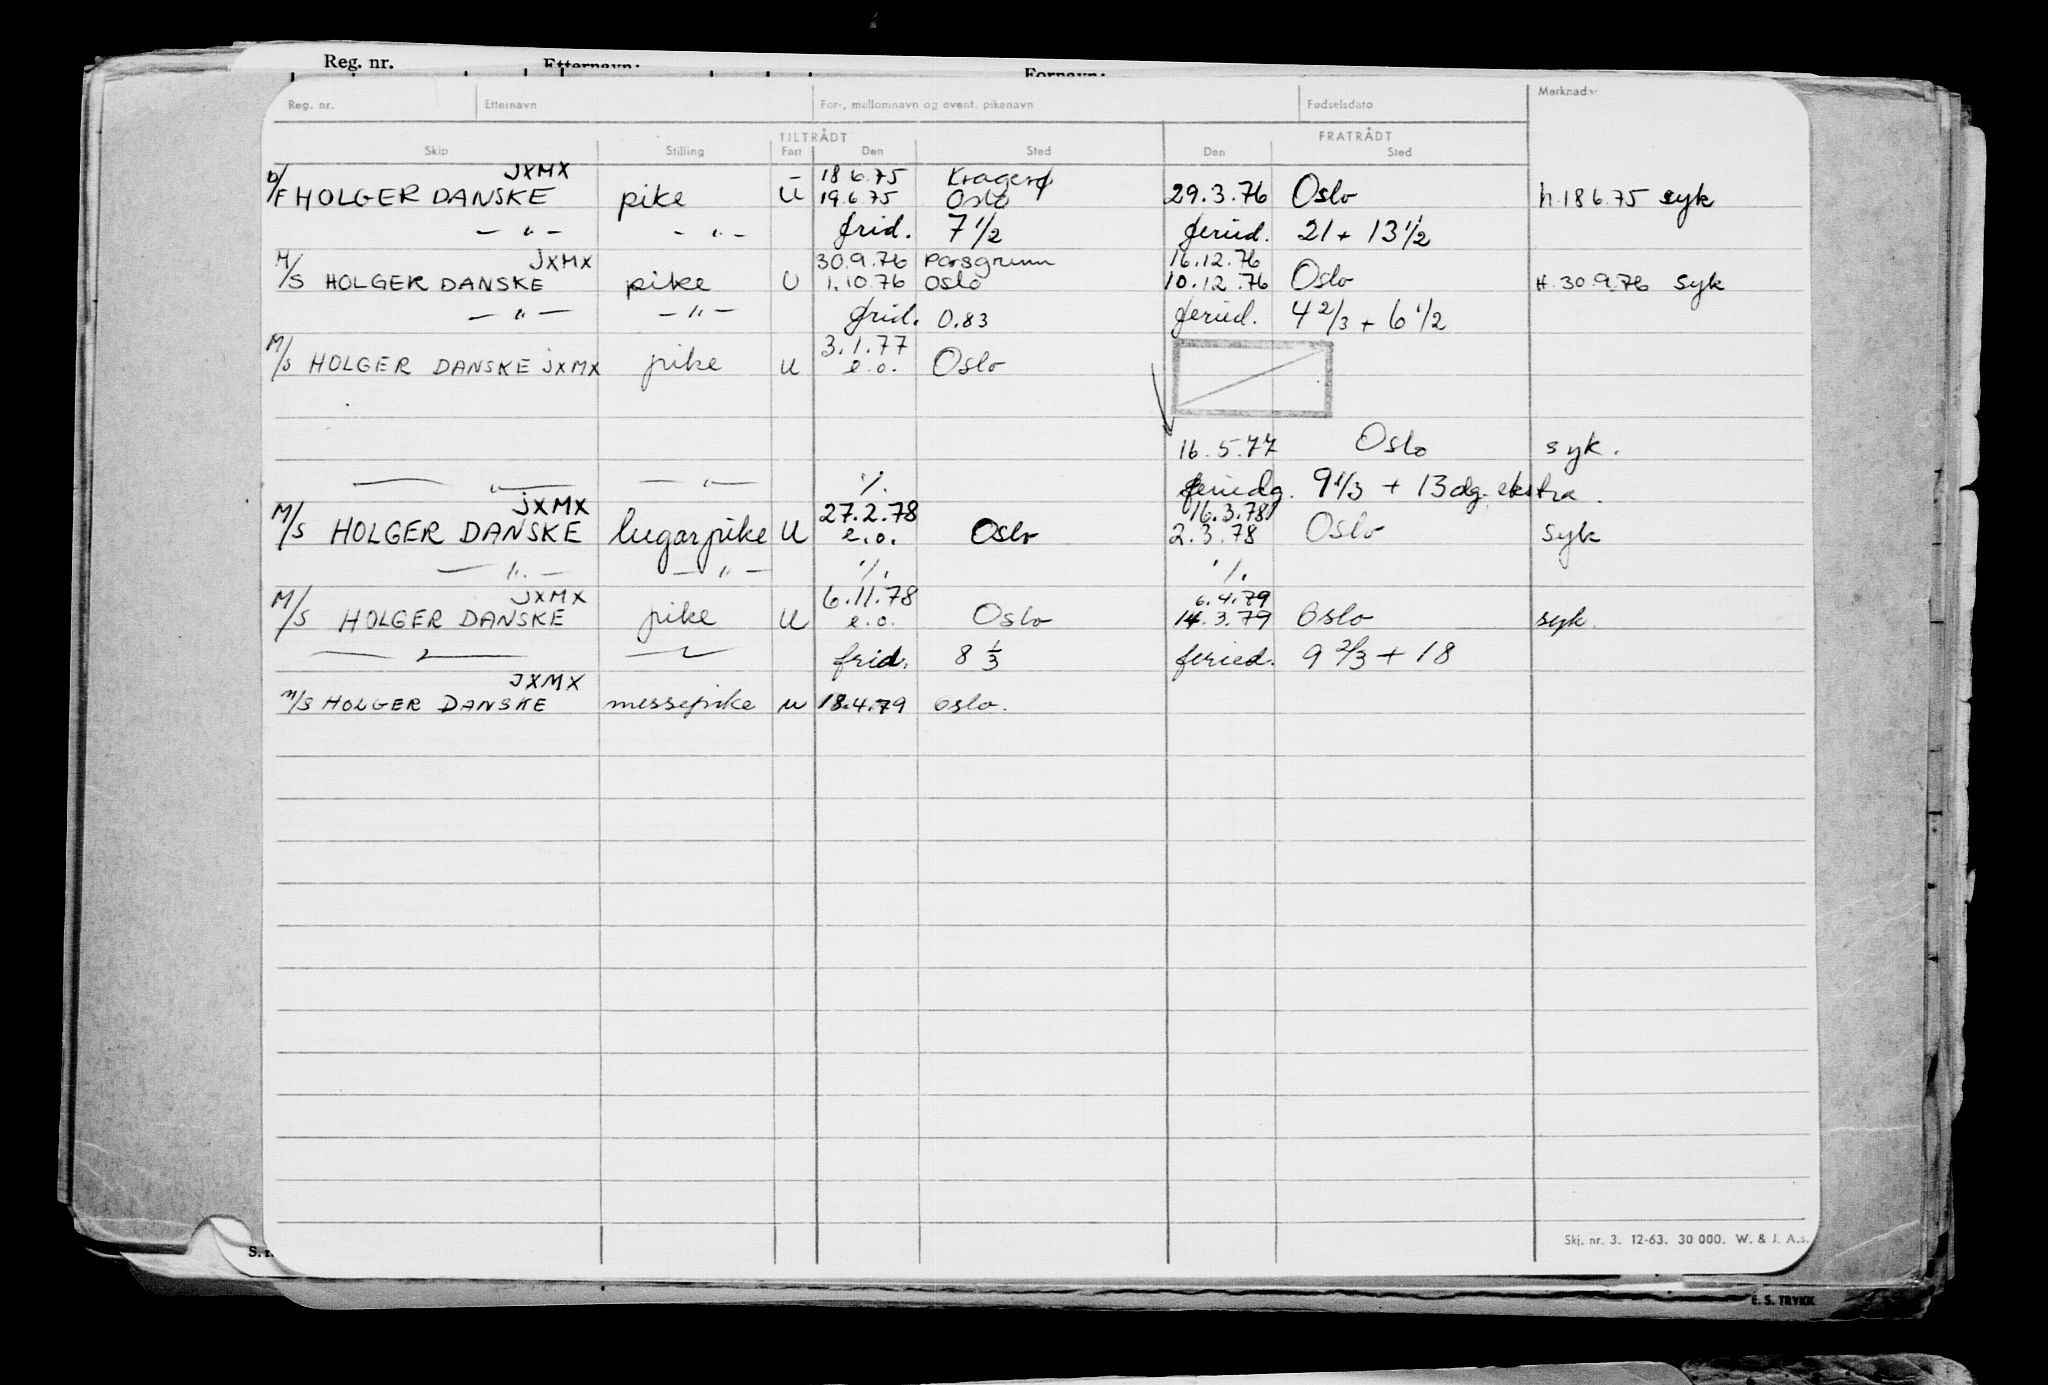 Reg. nr. Etternavn: Fornavn:
Reg. nr. Etternavn For-, mellomnavn og event. pikenavn Fødselsdato Merknader
TILTRÅDT FRATRÅDT
Skip Stilling Fart Den Sted Den Sted
JXMX - 18 6.75 Kragerø
D/F HOLGER DANSKE pike U 19.6.75 Oslo 29.3.76 Oslo h.18 6.75 syk
— " — - " - frid. 7 1/2 feried. 21 + 13 1/2
JXMX 30.9.76 Porsgrunn 16.12.76
M/S HOLGER DANSKE pike U 1.10.76 Oslo 10.12.76 Oslo H. 30.9.76 syk
— " — — " — frid. 0.83 feried. 4 2/3 + 6 1/2
3.1.77
M/S HOLGER DANSKE JXMX pike U e.o. Oslo
16.5.77 Oslo syk.
— " — — " — ·/. feriedg. 9 1/3 + 13 dg. ekstra.
JXMX 27.2.78 16.3.78
M/S HOLGER DANSKE lugarpike U e.o. Oslo 2.3.78 Oslo syk
— " — — " — ·/. ·/.
JXMX 6.11.78 6.4.79
M/S HOLGER DANSKE pike U e.o. Oslo 14.3.79 Oslo syk.
— " — — " — frid. 8 1/3 feried. 9 2/3 + 18
JXMX
M/S HOLGER DANSKE messepike U 18.4.79 Oslo.
Skj. nr. 3. 12-63. 30 000. W. & J. A.s.
E. S. TRYKK